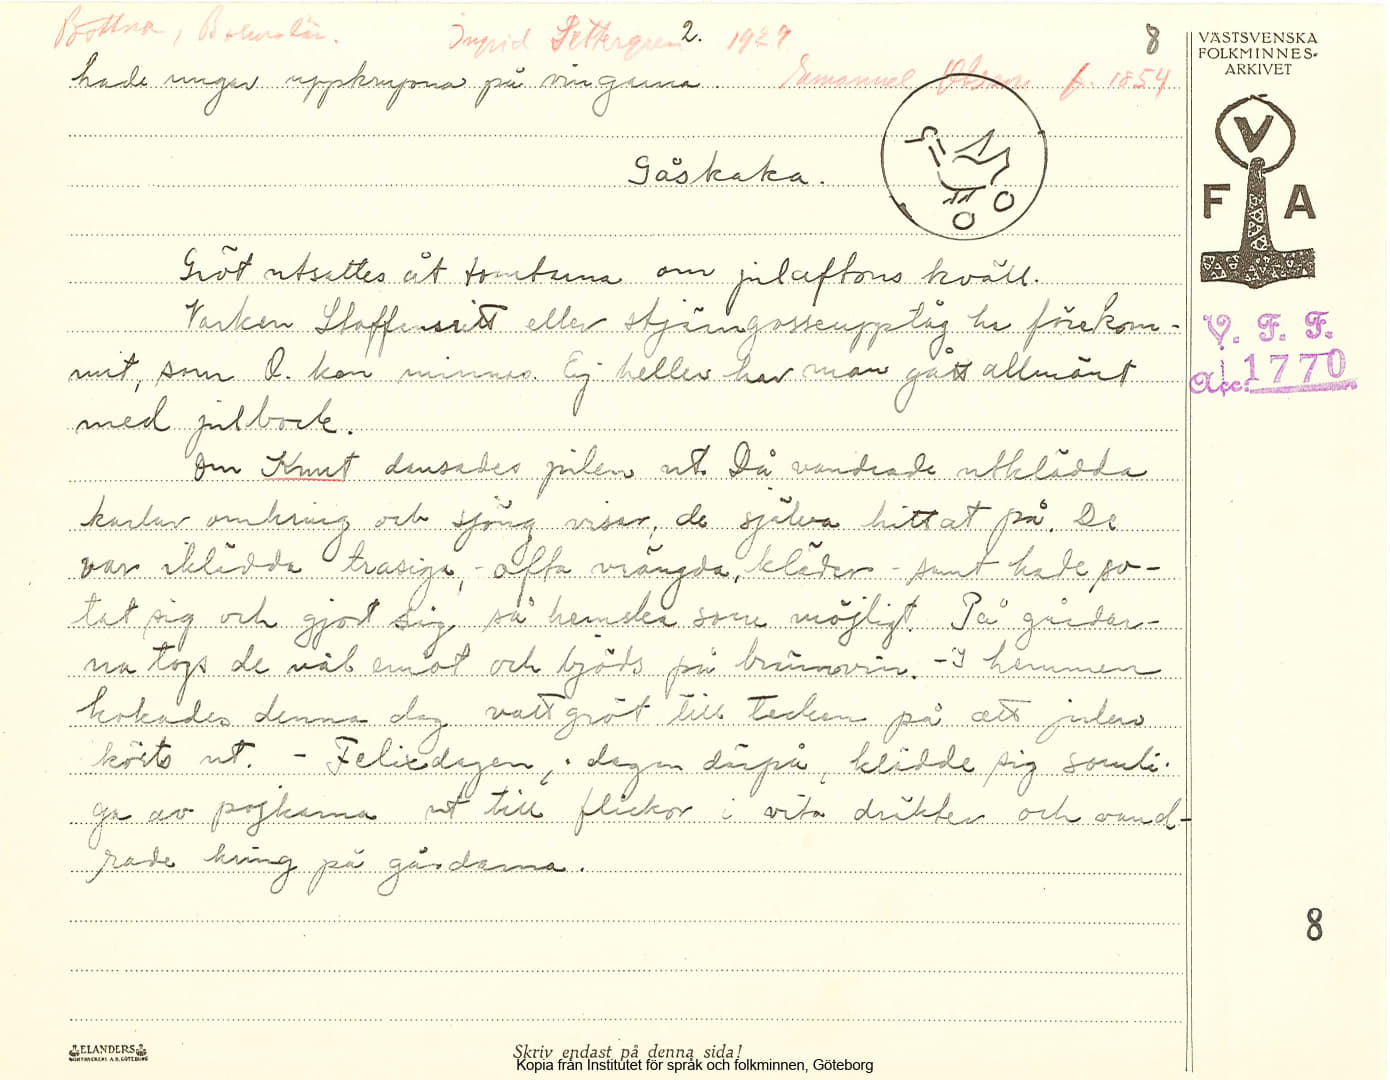 Bottna, Bohuslän. Ingrid Settergren 2. 1927 8
hade ungar uppkrupna på vingarna. Emanuel Olsson f. 1854
Gåskaka.
Gröt utsattes åt tomtarna om julaftons kväll.
Varken Staffansritt eller stjärngosseupptåg ha förekom-
mit, som O. kan minnas. Ej heller har man gått allmänt
med julbock.
Om Knut dansades julen ut. Då vandrade utklädda
karlar omkring och sjöng visor, de själva hittat på. De
var iklädda trasiga, - ofta vrängda, kläder - samt hade so-
tat sig och gjort sig så hemska som möjligt. På gårdar-
na togs de väl emot och bjöds på brännvin. - I hemmen
kokades denna dag vattgröt till tecken på att julen
körts ut. - Felixdagen, dagen därpå, klädde sig somli-
ga av pojkarna ut till flickor i vita dräkter och vand-
rade kring på gårdarna.
VÄSTSVENSKA
FOLKMINNES-
ARKIVET
V
F A
V. F. F.
Acc. 1770
8
ELANDERS
Skriv endast på denna sida!
Kopia från Institutet för språk och folkminnen, Göteborg